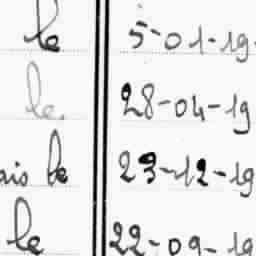 le 5-01-19
le 28-04-19
ais le 23-12-19
le 22-09-19